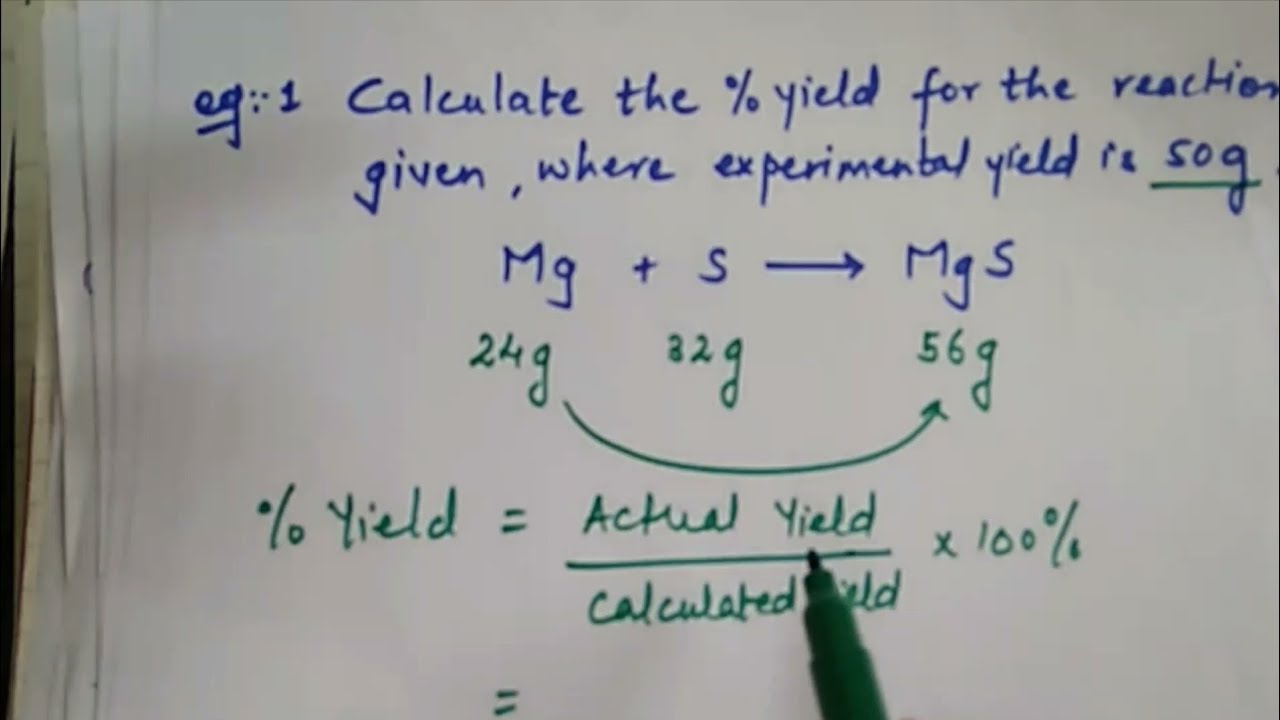 eg:-1 Calculate the % yield for the reaction
given, where experimental yield is 50g.
Mg + S → MgS
24g 32g 56g
% Yield = Actual Yield
x 100%
Calculated Yield
=